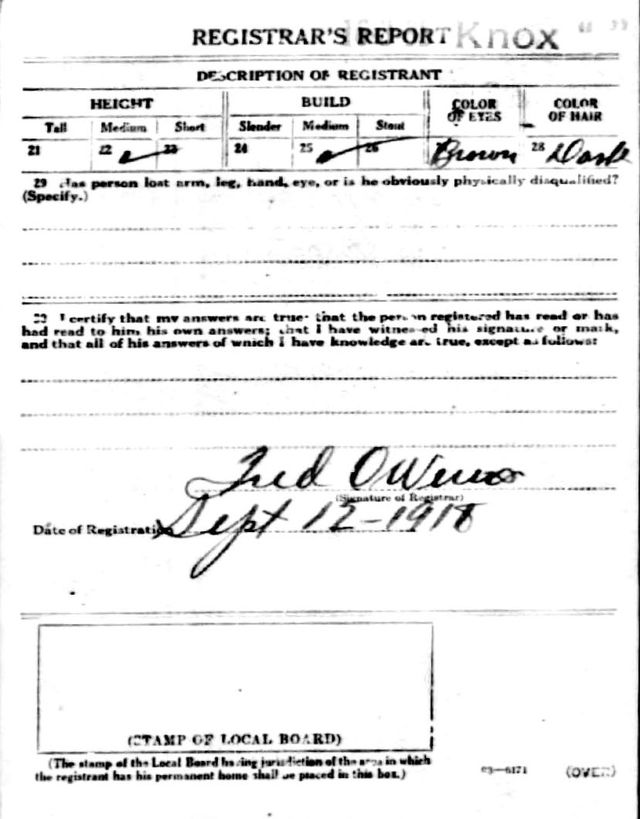 REGISTRAR'S REPORT Knox
DESCRIPTION OF REGISTRANT
HEIGHT BUILD COLOR OF EYES COLOR OF HAIR
Tall Medium Short Slender Medium Stout
21 22 ✓ 23 24 25 ✓ 26 Brown 28 Dark
29 Has person lost arm, leg, hand, eye, or is he obviously physically disqualified?
(Specify.)
30 I certify that my answers are true; that the person registered has read or has
had read to him his own answers; that I have witnessed his signature or mark,
and that all of his answers of which I have knowledge are true, except as follows:
Fred Owens
(Signature of Registrar)
Date of Registration Sept 12-1918
(STAMP OF LOCAL BOARD)
(The stamp of the Local Board having jurisdiction of the area in which
the registrant has his permanent home shall be placed in this box.)
03—6171 (OVER)